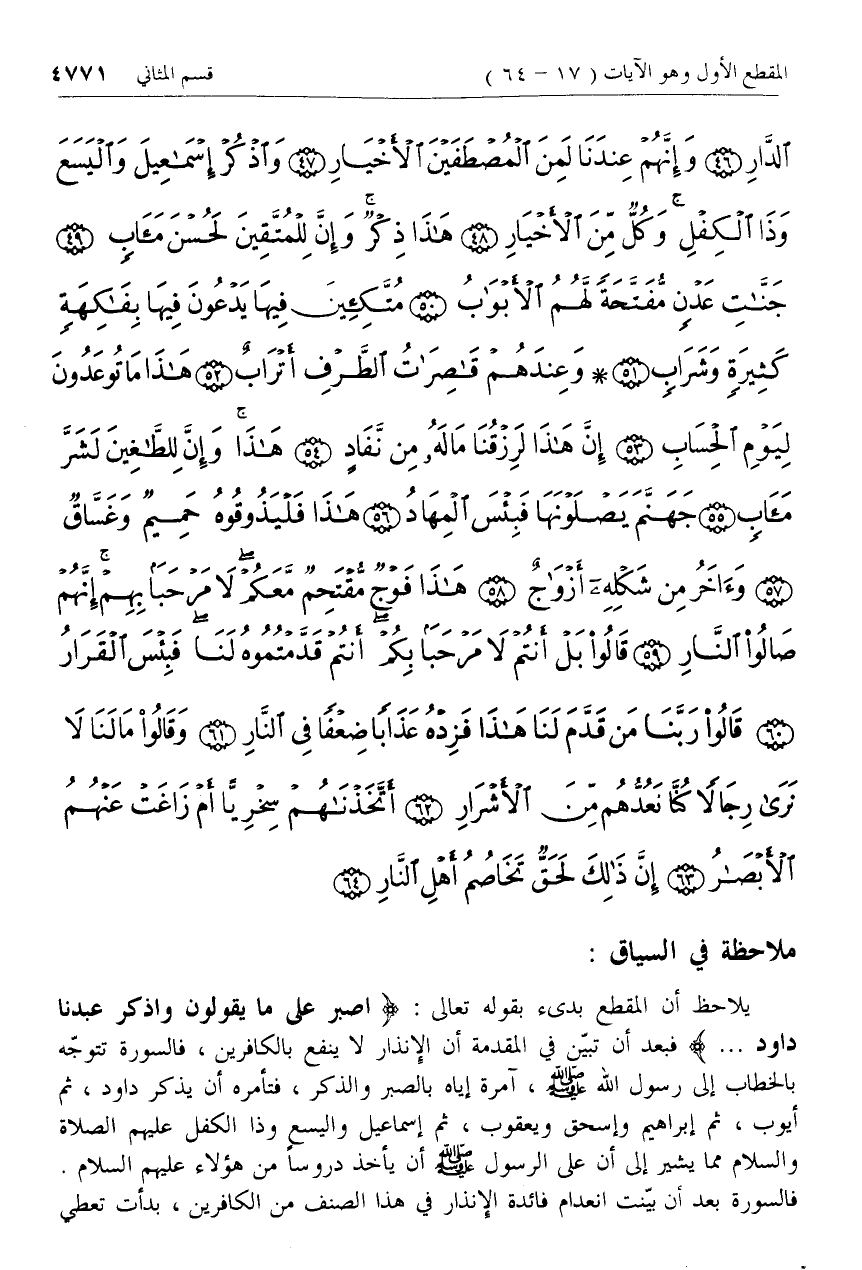 المقطع الأول وهو الآيات ( ١٧ - ٦٤ ) قسم المثاني ٤٧٧١
ٱلدَّارِ ۝٤٦ وَإِنَّهُمْ عِندَنَا لَمِنَ ٱلْمُصْطَفَيْنَ ٱلْأَخْيَارِ ۝٤٧ وَٱذْكُرْ إِسْمَٰعِيلَ وَٱلْيَسَعَ
وَذَا ٱلْكِفْلِ ۖ وَكُلٌّ مِّنَ ٱلْأَخْيَارِ ۝٤٨ هَٰذَا ذِكْرٌ ۚ وَإِنَّ لِلْمُتَّقِينَ لَحُسْنَ مَـَٔابٍ ۝٤٩
جَنَّٰتِ عَدْنٍ مُّفَتَّحَةً لَّهُمُ ٱلْأَبْوَٰبُ ۝٥٠ مُتَّكِـِٔينَ فِيهَا يَدْعُونَ فِيهَا بِفَٰكِهَةٍ
كَثِيرَةٍ وَشَرَابٍ ۝٥١ * وَعِندَهُمْ قَٰصِرَٰتُ ٱلطَّرْفِ أَتْرَابٌ ۝٥٢ هَٰذَا مَا تُوعَدُونَ
لِيَوْمِ ٱلْحِسَابِ ۝٥٣ إِنَّ هَٰذَا لَرِزْقُنَا مَا لَهُۥ مِن نَّفَادٍ ۝٥٤ هَٰذَا ۚ وَإِنَّ لِلطَّٰغِينَ لَشَرَّ
مَـَٔابٍ ۝٥٥ جَهَنَّمَ يَصْلَوْنَهَا فَبِئْسَ ٱلْمِهَادُ ۝٥٦ هَٰذَا فَلْيَذُوقُوهُ حَمِيمٌ وَغَسَّاقٌ
۝٥٧ وَءَاخَرُ مِن شَكْلِهِۦٓ أَزْوَٰجٌ ۝٥٨ هَٰذَا فَوْجٌ مُّقْتَحِمٌ مَّعَكُمْ ۖ لَا مَرْحَبًا بِهِمْ ۚ إِنَّهُمْ
صَالُوا۟ ٱلنَّارِ ۝٥٩ قَالُوا۟ بَلْ أَنتُمْ لَا مَرْحَبًا بِكُمْ ۖ أَنتُمْ قَدَّمْتُمُوهُ لَنَا ۖ فَبِئْسَ ٱلْقَرَارُ
۝٦٠ قَالُوا۟ رَبَّنَا مَن قَدَّمَ لَنَا هَٰذَا فَزِدْهُ عَذَابًا ضِعْفًا فِى ٱلنَّارِ ۝٦١ وَقَالُوا۟ مَا لَنَا لَا
نَرَىٰ رِجَالًا كُنَّا نَعُدُّهُم مِّنَ ٱلْأَشْرَارِ ۝٦٢ أَتَّخَذْنَٰهُمْ سِخْرِيًّا أَمْ زَاغَتْ عَنْهُمُ
ٱلْأَبْصَٰرُ ۝٦٣ إِنَّ ذَٰلِكَ لَحَقٌّ تَخَاصُمُ أَهْلِ ٱلنَّارِ ۝٦٤
ملاحظة في السياق :
يلاحظ أن المقطع بدىء بقوله تعالى : ﴿ اصبر على ما يقولون واذكر عبدنا
داود ... ﴾ فبعد أن تبيّن في المقدمة أن الإنذار لا ينفع بالكافرين ، فالسورة تتوجّه
بالخطاب إلى رسول الله ﷺ ، آمرة إياه بالصبر والذكر ، فتأمره أن يذكر داود ، ثم
أيوب ، ثم إبراهيم وإسحق ويعقوب ، ثم إسماعيل واليسع وذا الكفل عليهم الصلاة
والسلام مما يشير إلى أن على الرسول ﷺ أن يأخذ دروساً من هؤلاء عليهم السلام .
فالسورة بعد أن بيّنت انعدام فائدة الإنذار في هذا الصنف من الكافرين ، بدأت تعطي